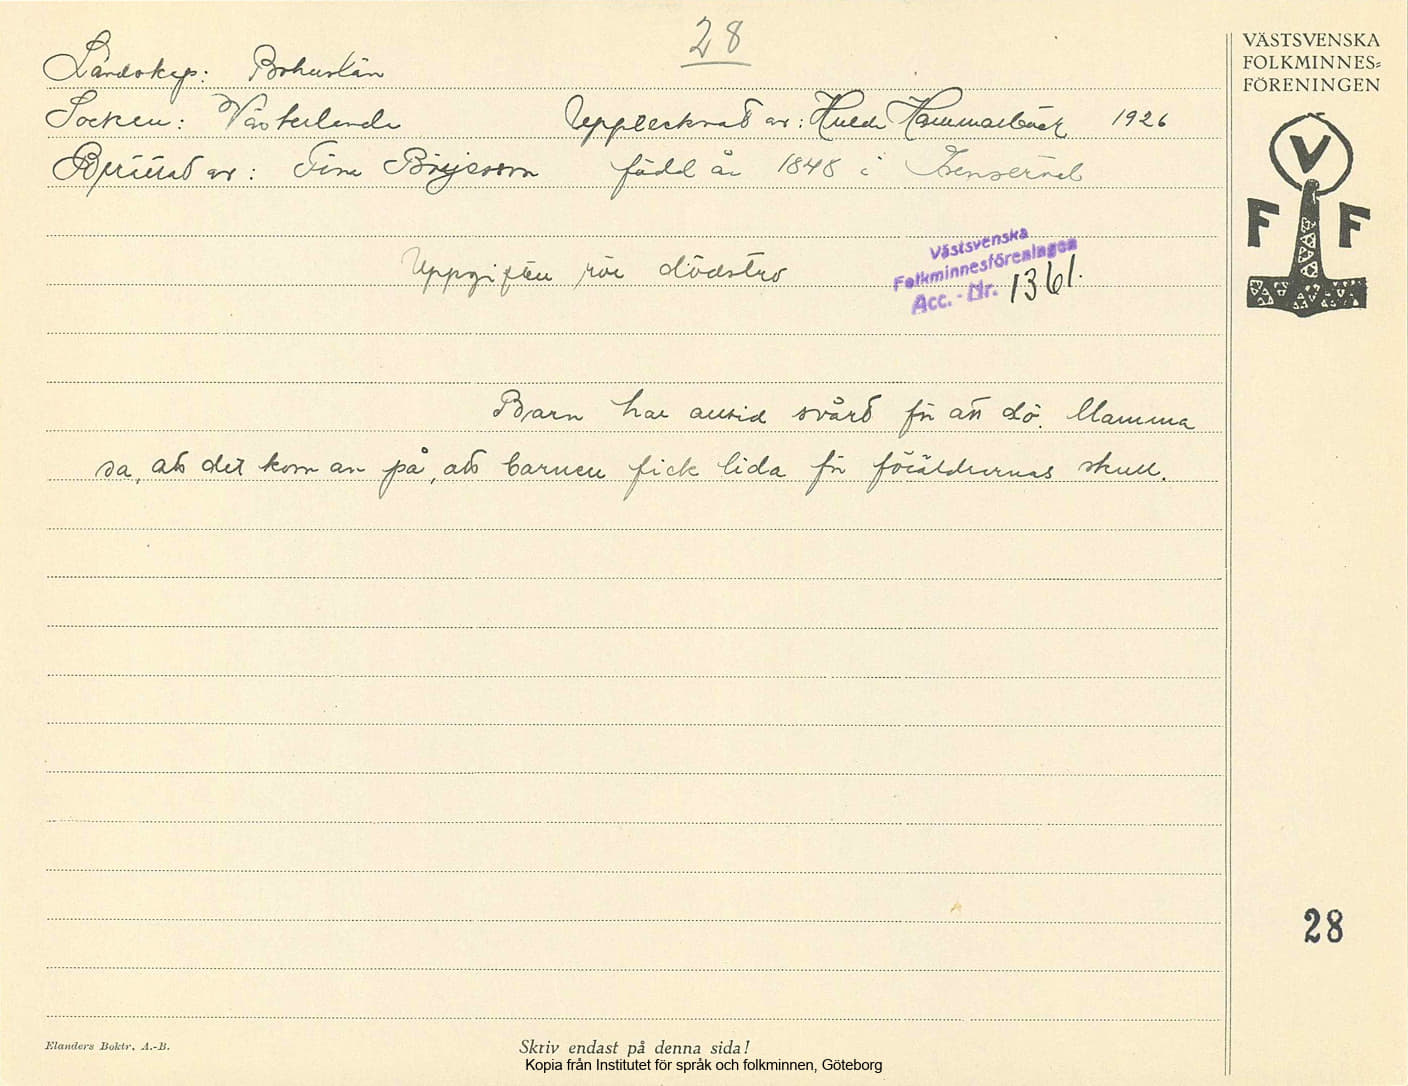 28
Landskap: Bohuslän
Socken: Västerlanda Upptecknat av: Hulda Hammarbäck 1926
Berättat av: Tina Börjesson född år 1848 i
Uppgiften rör dödstro
Västsvenska
Folkminnesföreningen
Acc. - Nr. 1361.
Barn har alltid svårt för att dö. Mamma
sa, att det kom an på, att barnen fick lida för föräldrarnas skull.
VÄSTSVENSKA
FOLKMINNES=
FÖRENINGEN
V
F F
28
Elanders Boktr. A.-B.
Skriv endast på denna sida!
Kopia från Institutet för språk och folkminnen, Göteborg